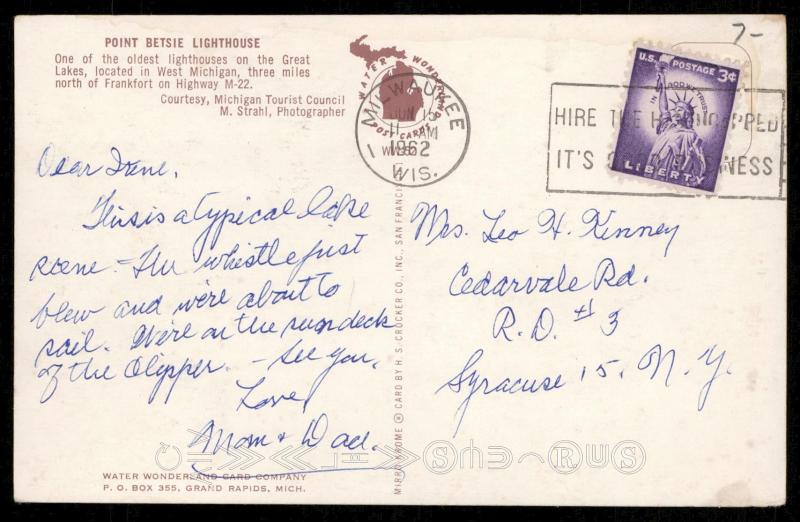 POINT BETSIE LIGHTHOUSE
One of the oldest lighthouses on the Great
Lakes, located in West Michigan, three miles
north of Frankfort on Highway M-22.
Courtesy, Michigan Tourist Council
M. Strahl, Photographer
WATER WONDERLAND
POST CARD
MILWAUKEE
JUN 15
11 AM
1962
WIS.
HIRE THE HANDICAPPED
IT'S GOOD BUSINESS
U.S. POSTAGE 3¢
IN GOD WE TRUST
LIBERTY
7-
Dear Irene,
This is a typical lake
scene - The whistle just
blew and we're about to
sail. We're on the sun deck
of the Clipper. - See you.
Love
Mom + Dad.
Mrs. Leo H. Kenney
Cedarvale Rd.
R.D. #3
Syracuse 15, N.Y.
WATER WONDERLAND CARD COMPANY
P. O. BOX 355, GRAND RAPIDS, MICH.
MIRRO-KROME ® CARD BY H. S. CROCKER CO., INC., SAN FRANCIS